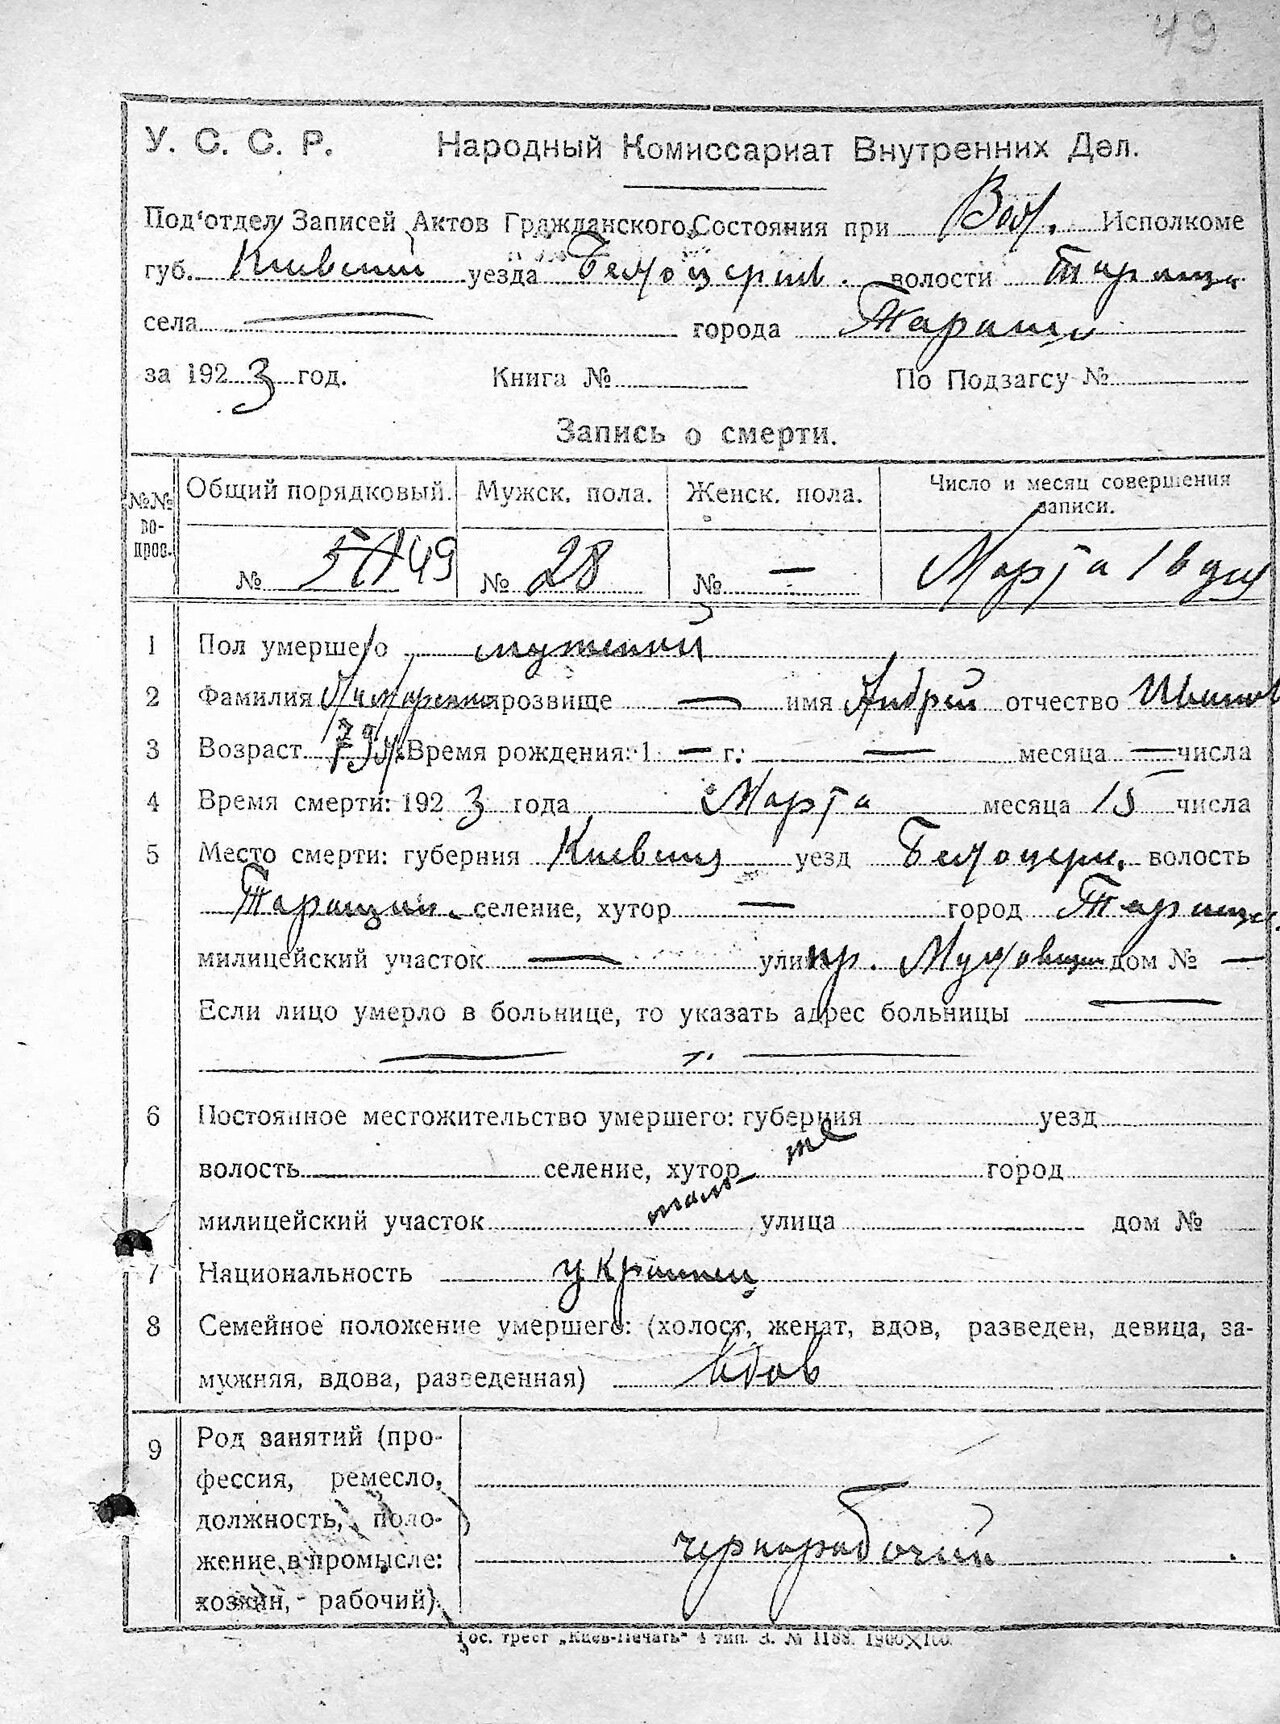 49
У. С. С. Р. Народный Комиссариат Внутренних Дел.
Под'отдел Записей Актов Гражданского Состояния при Вол. Исполкоме
губ. Киевский уезда Белоцерков. волости Тараща
села — города Тараща
за 1923 год. Книга № По Подзагсу №
Запись о смерти.
№№ во-прос. Общий порядковый. Мужск. пола. Женск. пола. Число и месяц совершения записи.
№ 49 № 28 № — Марта 16 дня
1 Пол умершего мужской
2 Фамилия прозвище — имя Андрей отчество Иванов
3 Возраст 79 л. Время рождения: 1 — г. — месяца — числа
4 Время смерти: 1923 года Марта месяца 15 числа
5 Место смерти: губерния Киевская уезд Белоцерк. волость
Таращан. селение, хутор — город Тараща
милицейский участок — улица пр. дом № —
Если лицо умерло в больнице, то указать адрес больницы —
— " —
6 Постоянное местожительство умершего: губерния уезд
волость селение, хутор там-же город
милицейский участок улица дом №
7 Национальность украинец
8 Семейное положение умершего: (холост, женат, вдов, разведен, девица, за-
мужняя, вдова, разведенная) вдов
9 Род занятий (про-
фессия, ремесло,
должность, поло-
жение в промысле: чернорабочий
хозяин, - рабочий).
Гос. трест „Киев-Печать" 4 тип. З. № 1188. 1900×100.